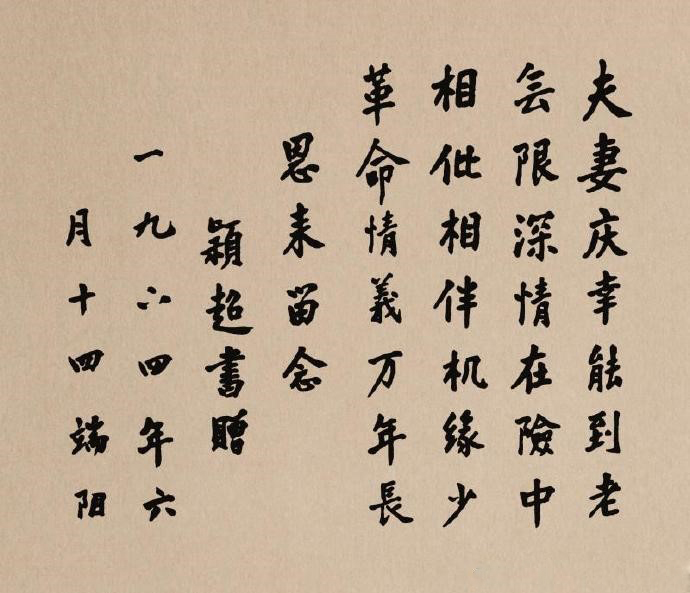 夫妻庆幸能到老
无限深情在險中
相伴相伴机缘少
革命情義万年長
恩来留念
穎超書贈
一九六四年六
月十四端阳